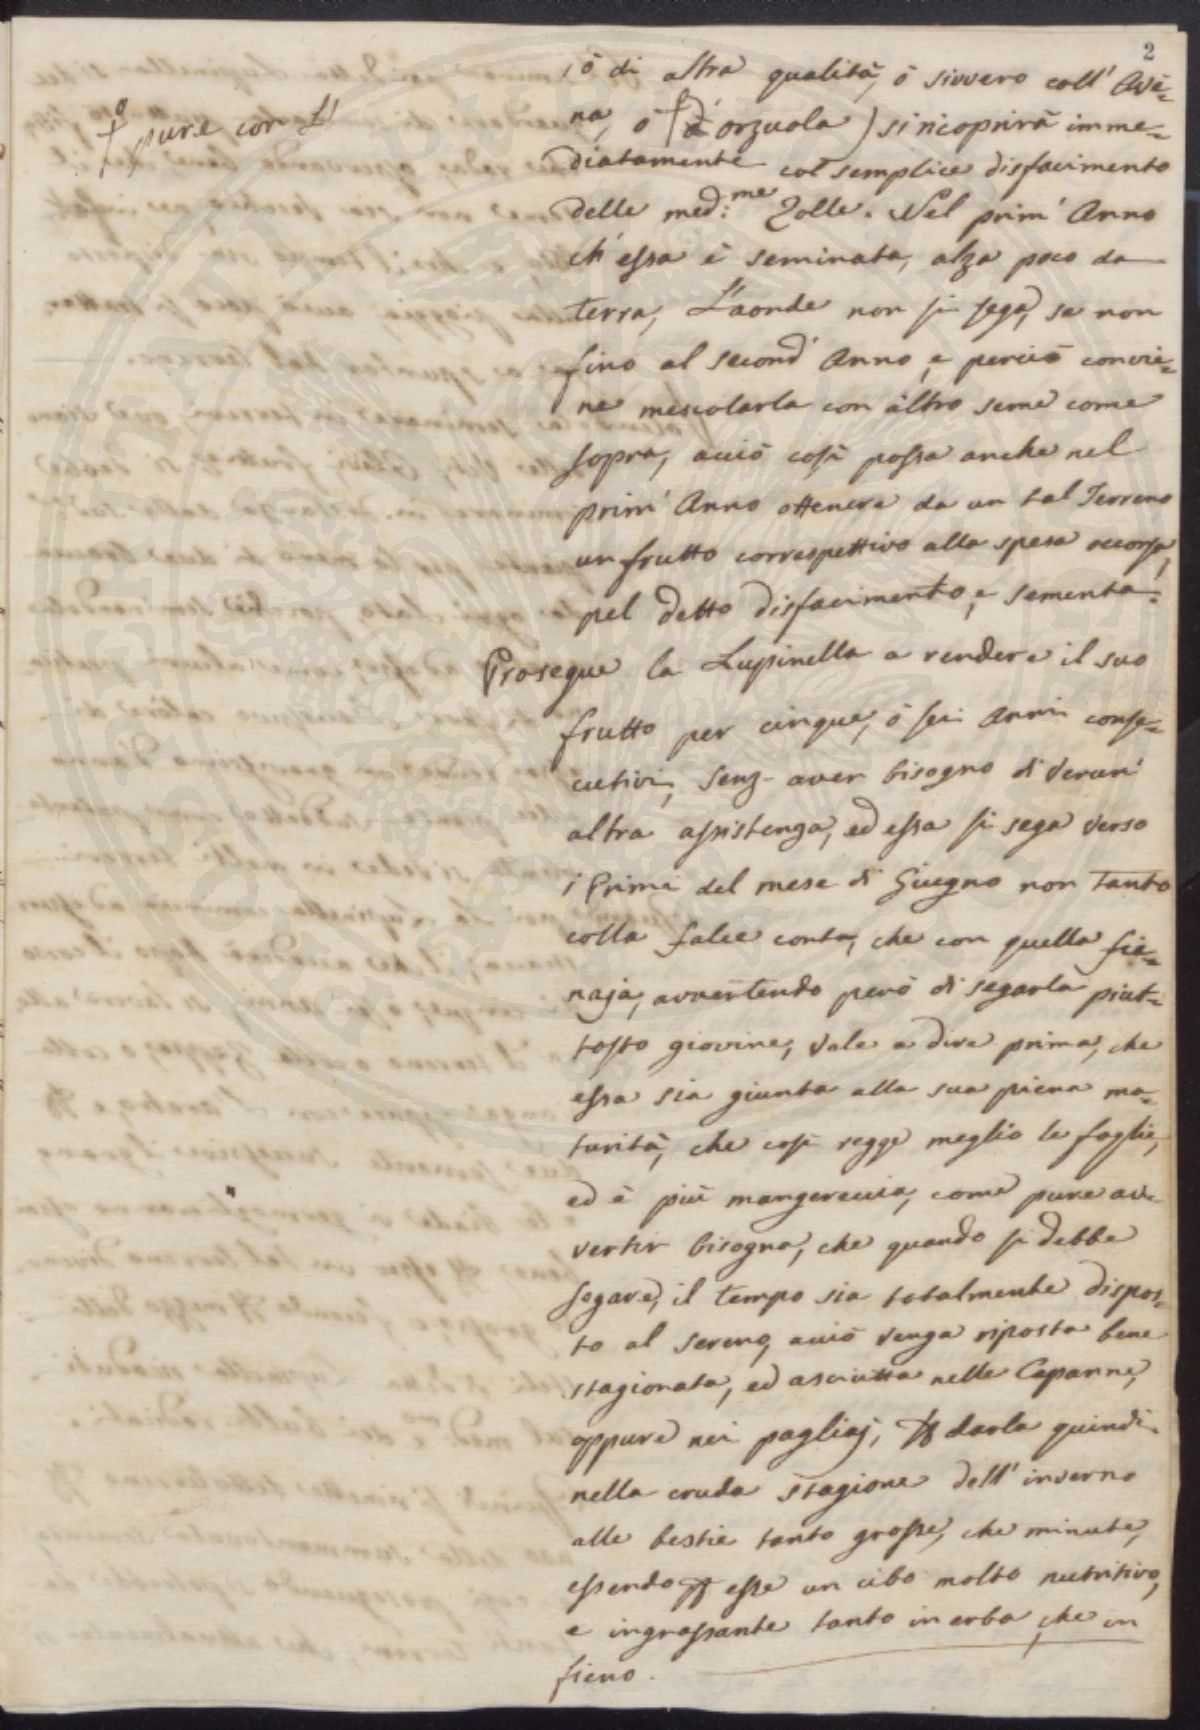 2
sò di altra qualità, ò sivvero coll' Avè=
na, ò orzuola) si ricoprirà imme=
o pure con L'
diatamente col semplice disfacimento
delle med:me Zolle. Nel prim' Anno
ch' essa è seminata, alza poco da
terra, Laonde non si sega, se non
fino al second' Anno, e perciò convie=
ne mescolarla con altro seme come
sopra, acciò così possa anche nel
prim' Anno ottenere da un tal Terreno
un frutto correspettivo alla spesa occorsa,
pel detto disfacimento, e sementa.
Prosegue la Lupinella a rendere il suo
frutto per cinque, ò sei Anni conse=
cutivi, senz- aver bisogno di verun'
altra assistenza, ed essa si sega verso
i Primi del mese di Giugno non tanto
colla falce conta, che con quella fie=
naja, avvertendo però di segarla piut=
tosto giovine, vale a dire prima, che
essa sia giunta alla sua piena ma=
turità, che così regge meglio le foglie,
ed è più mangereccia, come pure av=
vertir bisogna, che quando si debbe
segare, il tempo sia totalmente dispos=
to al sereno, acciò venga riposta bene
stagionata, ed asciutta nelle Capanne,
oppure nei pagliaj, darla quindi
nella cruda stagione dell' inverno
alle bestie tanto grosse, che minute,
essendo esse un cibo molto nutritivo,
e ingrassante tanto in erba, che in
fieno.